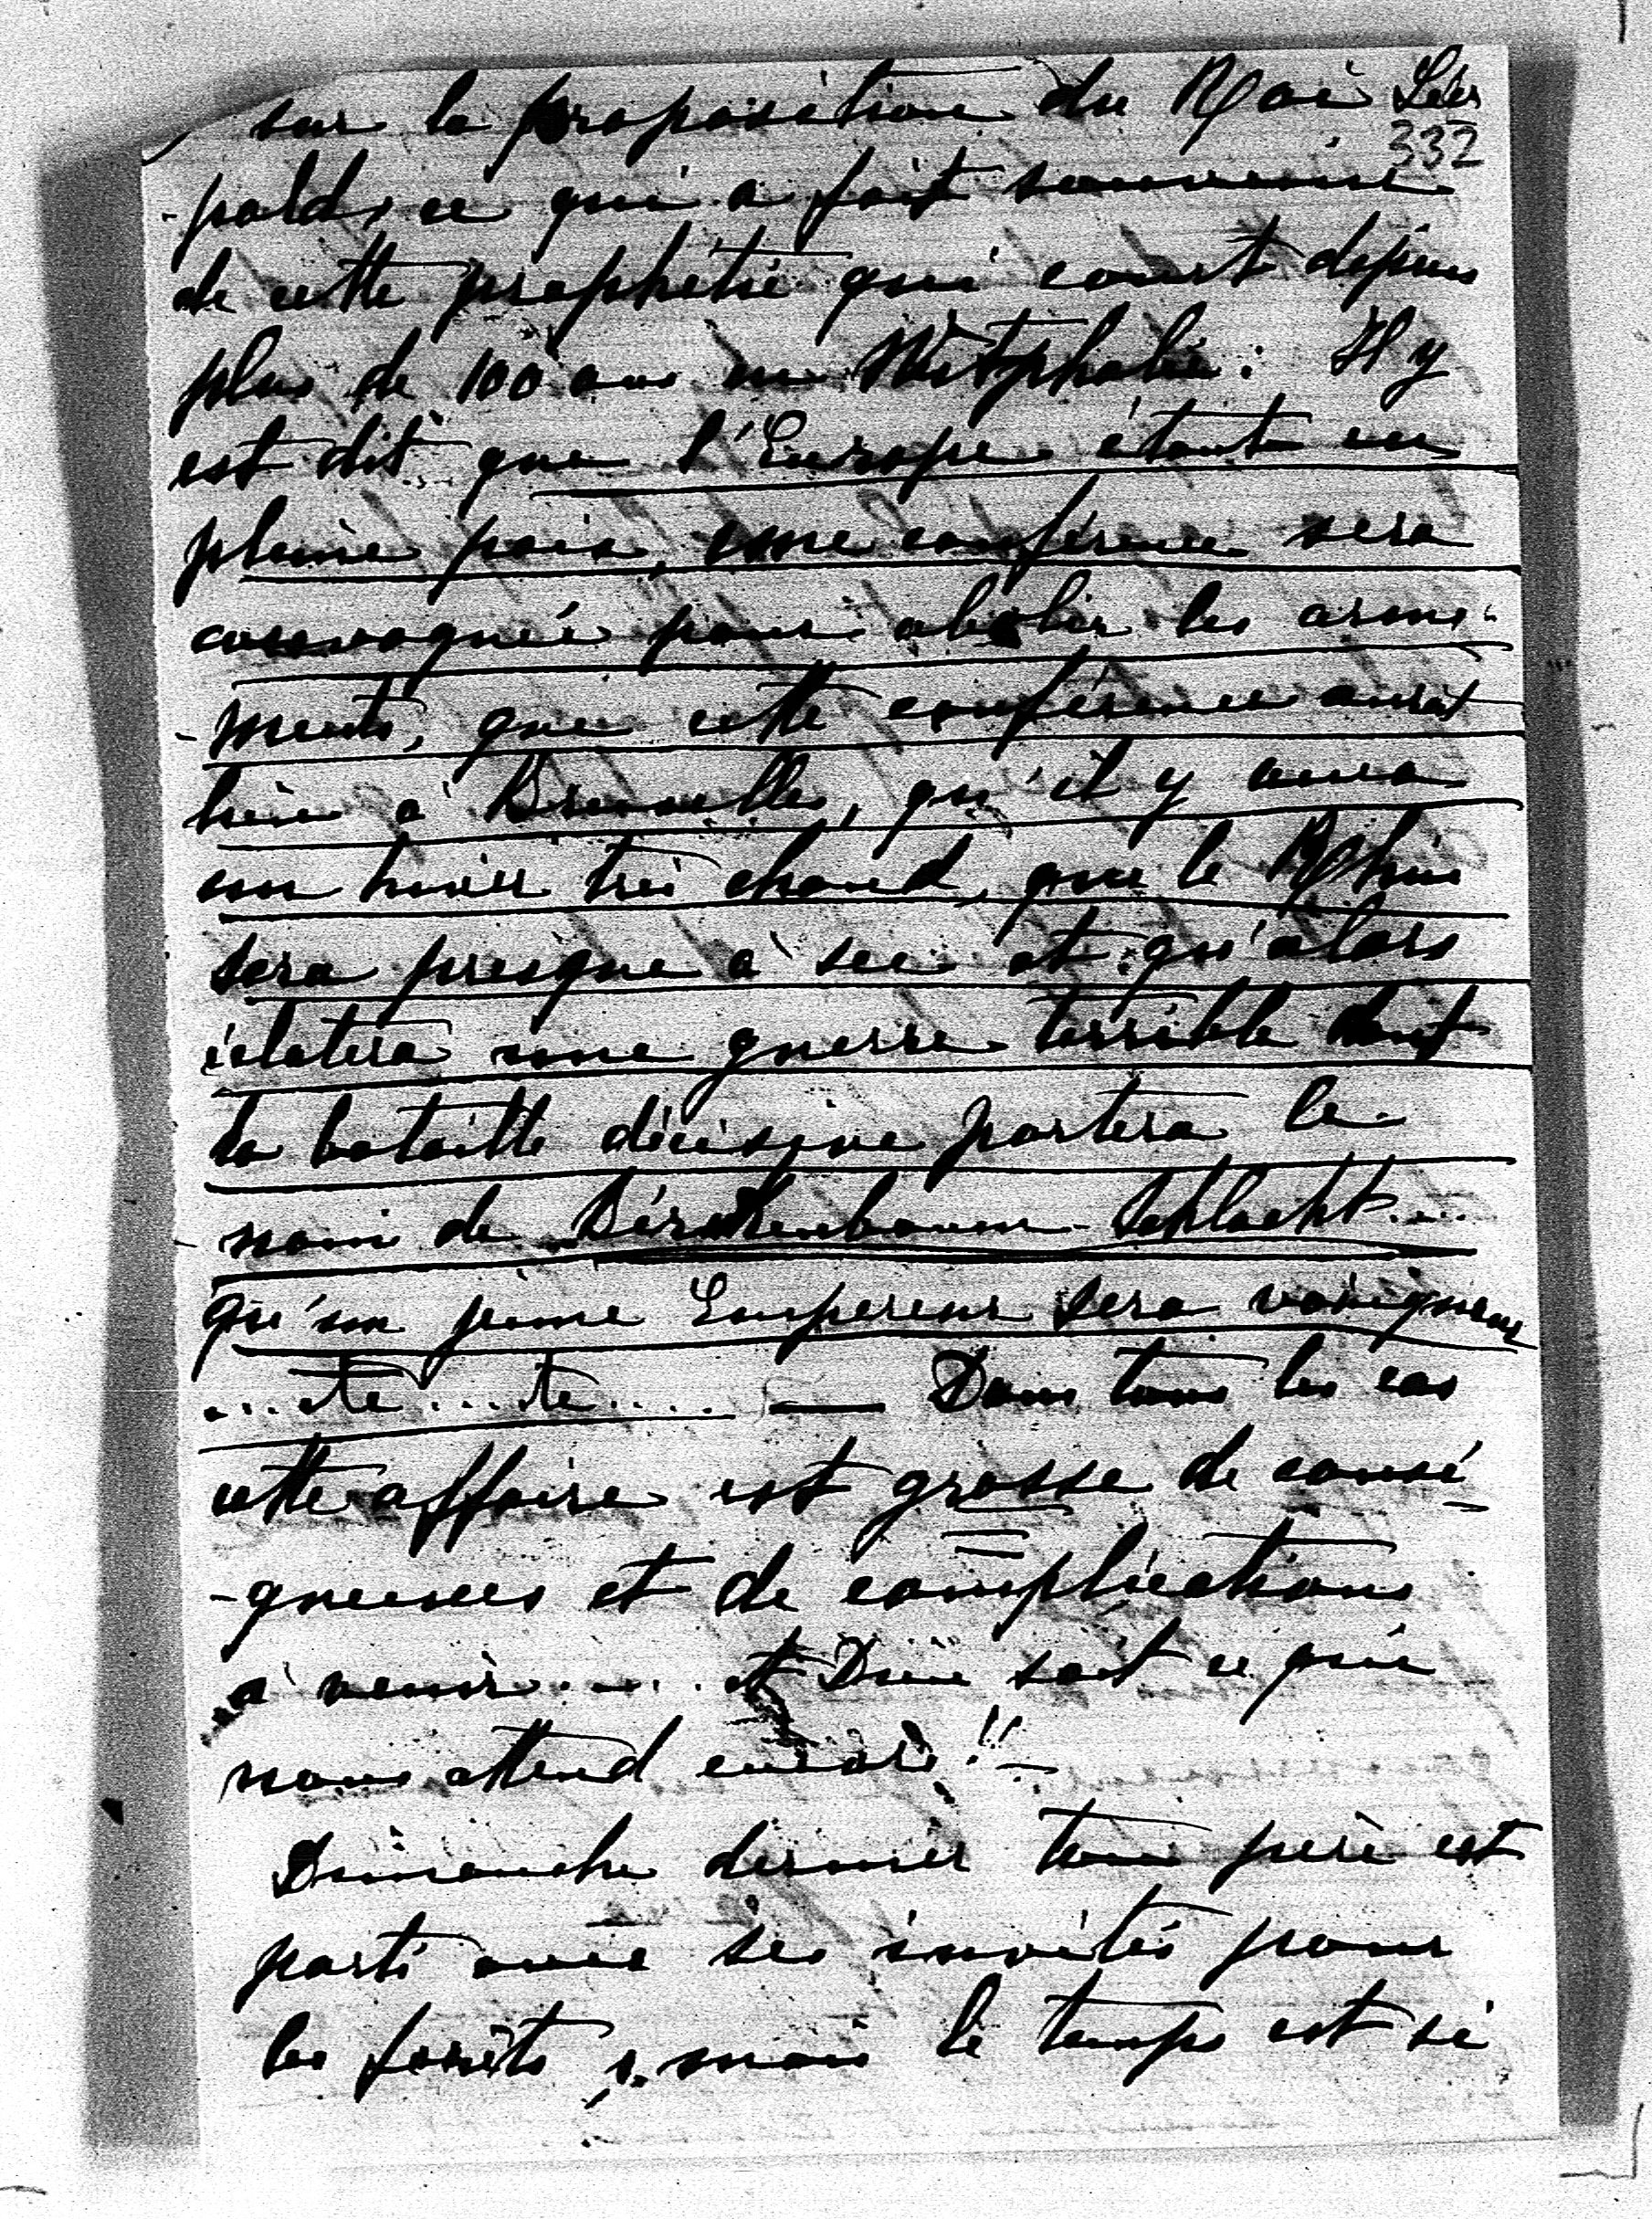 sur la proposition du Roi Léo
332
-pold, ce qui a fait souvenir
de cette prophétie qui court depuis
plus de 100 ans en Westphalie : Il y
est dit que l'Europe étant en
pleine paix, une conférence sera
convoquée pour abolir les arme-
-ments, que cette conférence aurat
lieu à Bruxelles, qu'il y aura
un hiver très chaud, que le Rhin
sera presque à sec et qu'alors
éclatera une guerre terrible dont
la bataille décisive portera le
nom de Birckenbaum-Schlacht...
qu'un jeune Empereur sera vainqueur
...etc...etc.... — Dans tous les cas
cette affaire est grosse de consé
-quences et de complications
à venir..... et Dieu sait ce qui
nous attend encore !! —
Dimanche dernier ton père est
parti avec ses invités pour
les forêts, mais le temps est si